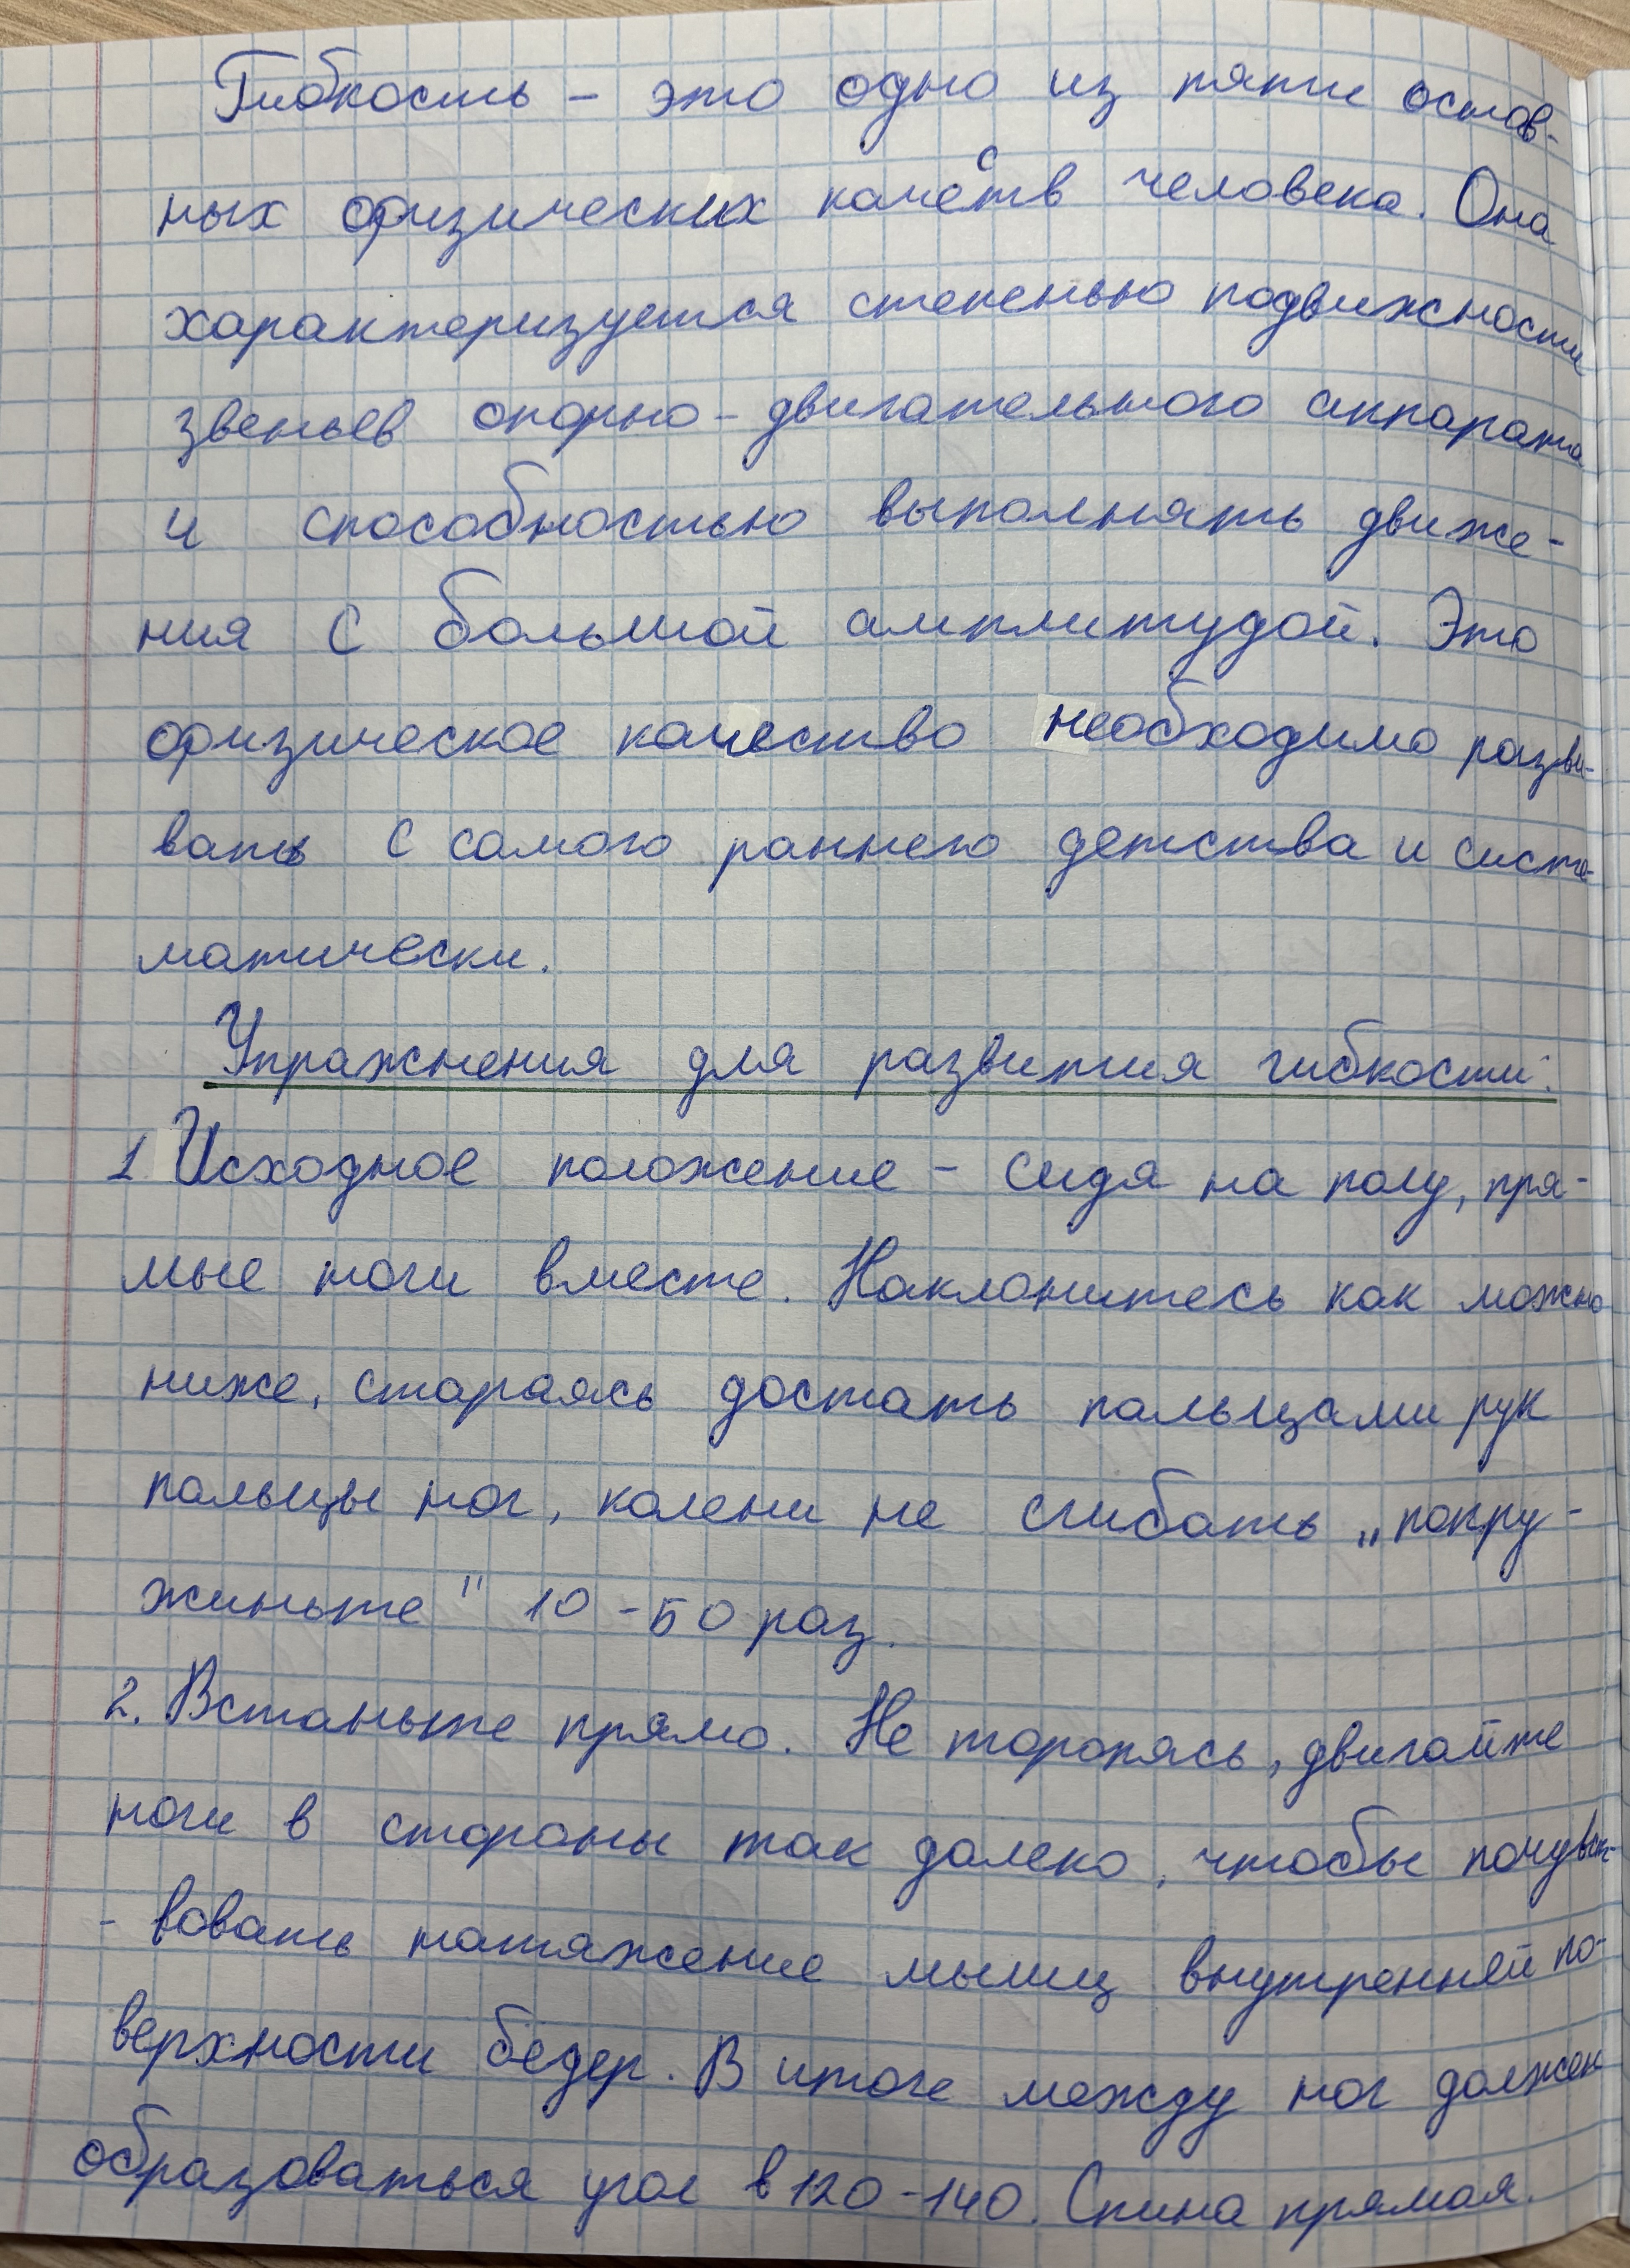 Гибкость – это одно из пяти основ-
ных физических качеств человека. Она
характеризуется степенью подвижности
звеньев опорно-двигательного аппарата
и способностью выполнять движе-
ния с большой амплитудой. Это
физическое качество необходимо разви-
вать с самого раннего детства и систе-
матически.
Упражнения для развития гибкости:
1 Исходное положение – сидя на полу, пря-
мые ноги вместе. Наклонитесь как можно
ниже, стараясь достать пальцами рук
пальцы ног, колени не сгибать „попру-
жиньте" 10-50 раз.
2. Встаньте прямо. Не торопясь, двигайте
ноги в стороны так далеко, чтобы почувст-
- вовать натяжение мышц внутренней по-
верхности бедер. В итоге между ног должен
образоваться угол в 120-140. Спина прямая.